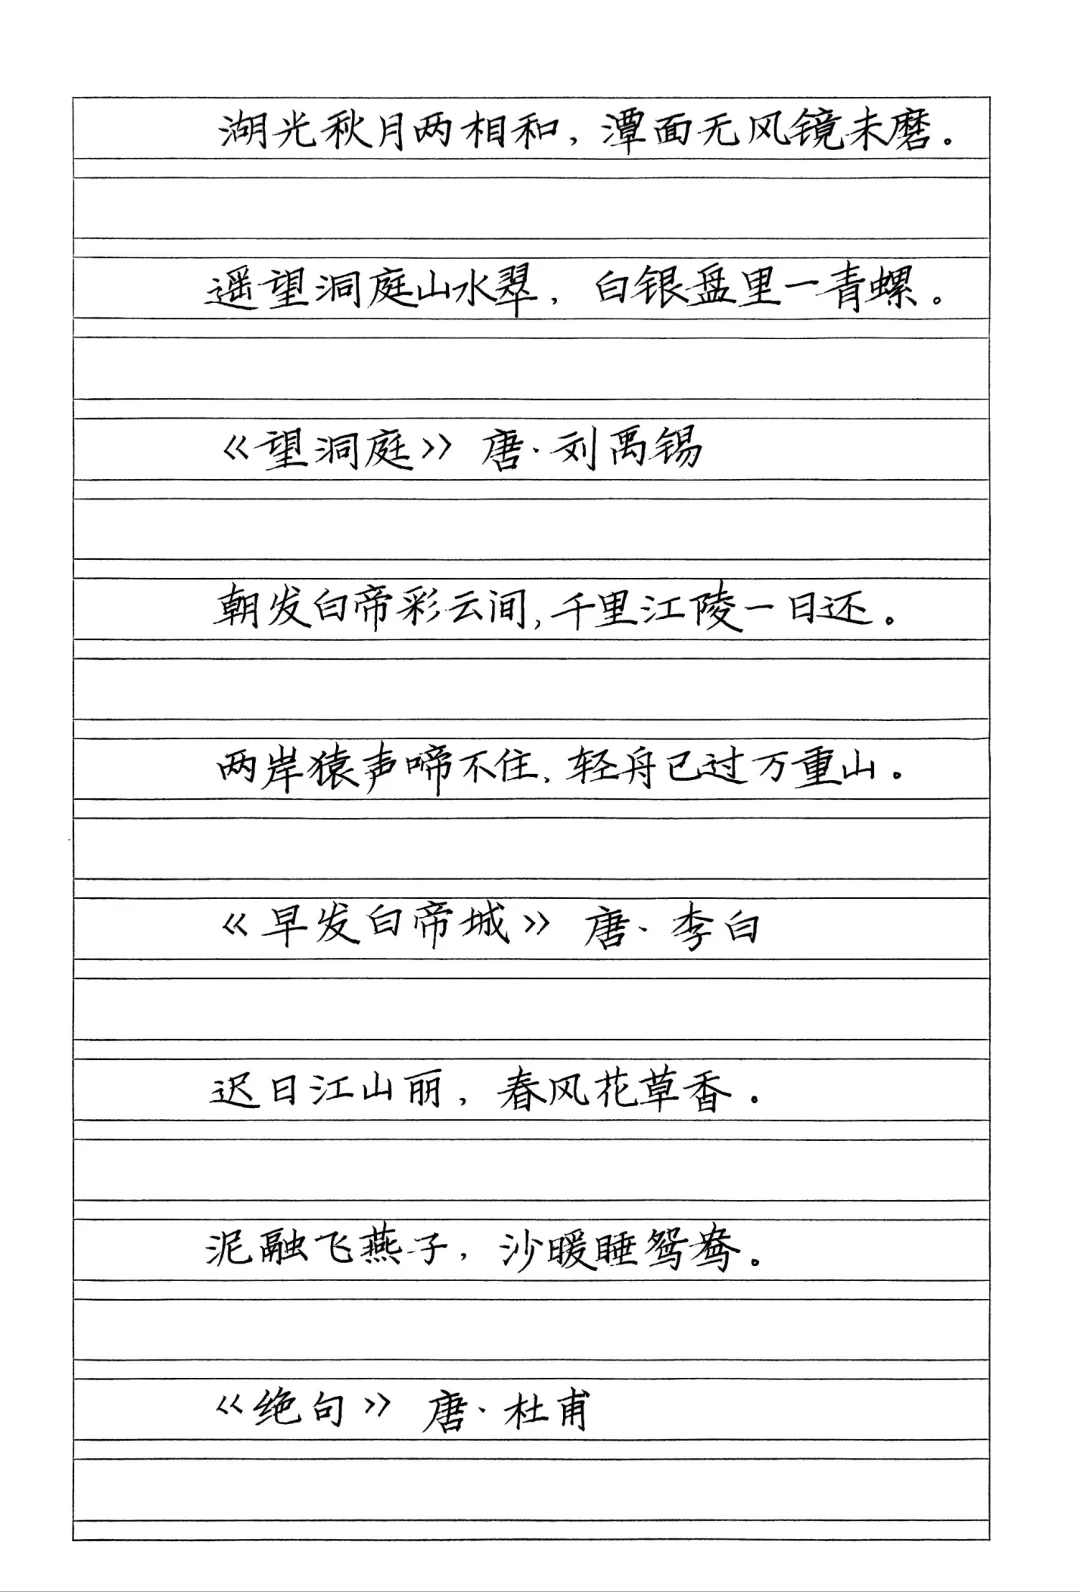 湖光秋月两相和，潭面无风镜未磨。
遥望洞庭山水翠，白银盘里一青螺。
《望洞庭》唐·刘禹锡
朝发白帝彩云间，千里江陵一日还。
两岸猿声啼不住，轻舟已过万重山。
《早发白帝城》唐·李白
迟日江山丽，春风花草香。
泥融飞燕子，沙暖睡鸳鸯。
《绝句》唐·杜甫